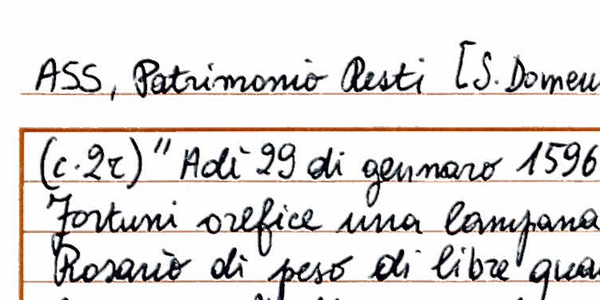 ASS, Patrimonio Resti [S. Domen
(c.2r) "Adì 29 di gennaro 1596
Fortuni orefice una lampana
Rosario di peso di libre qua